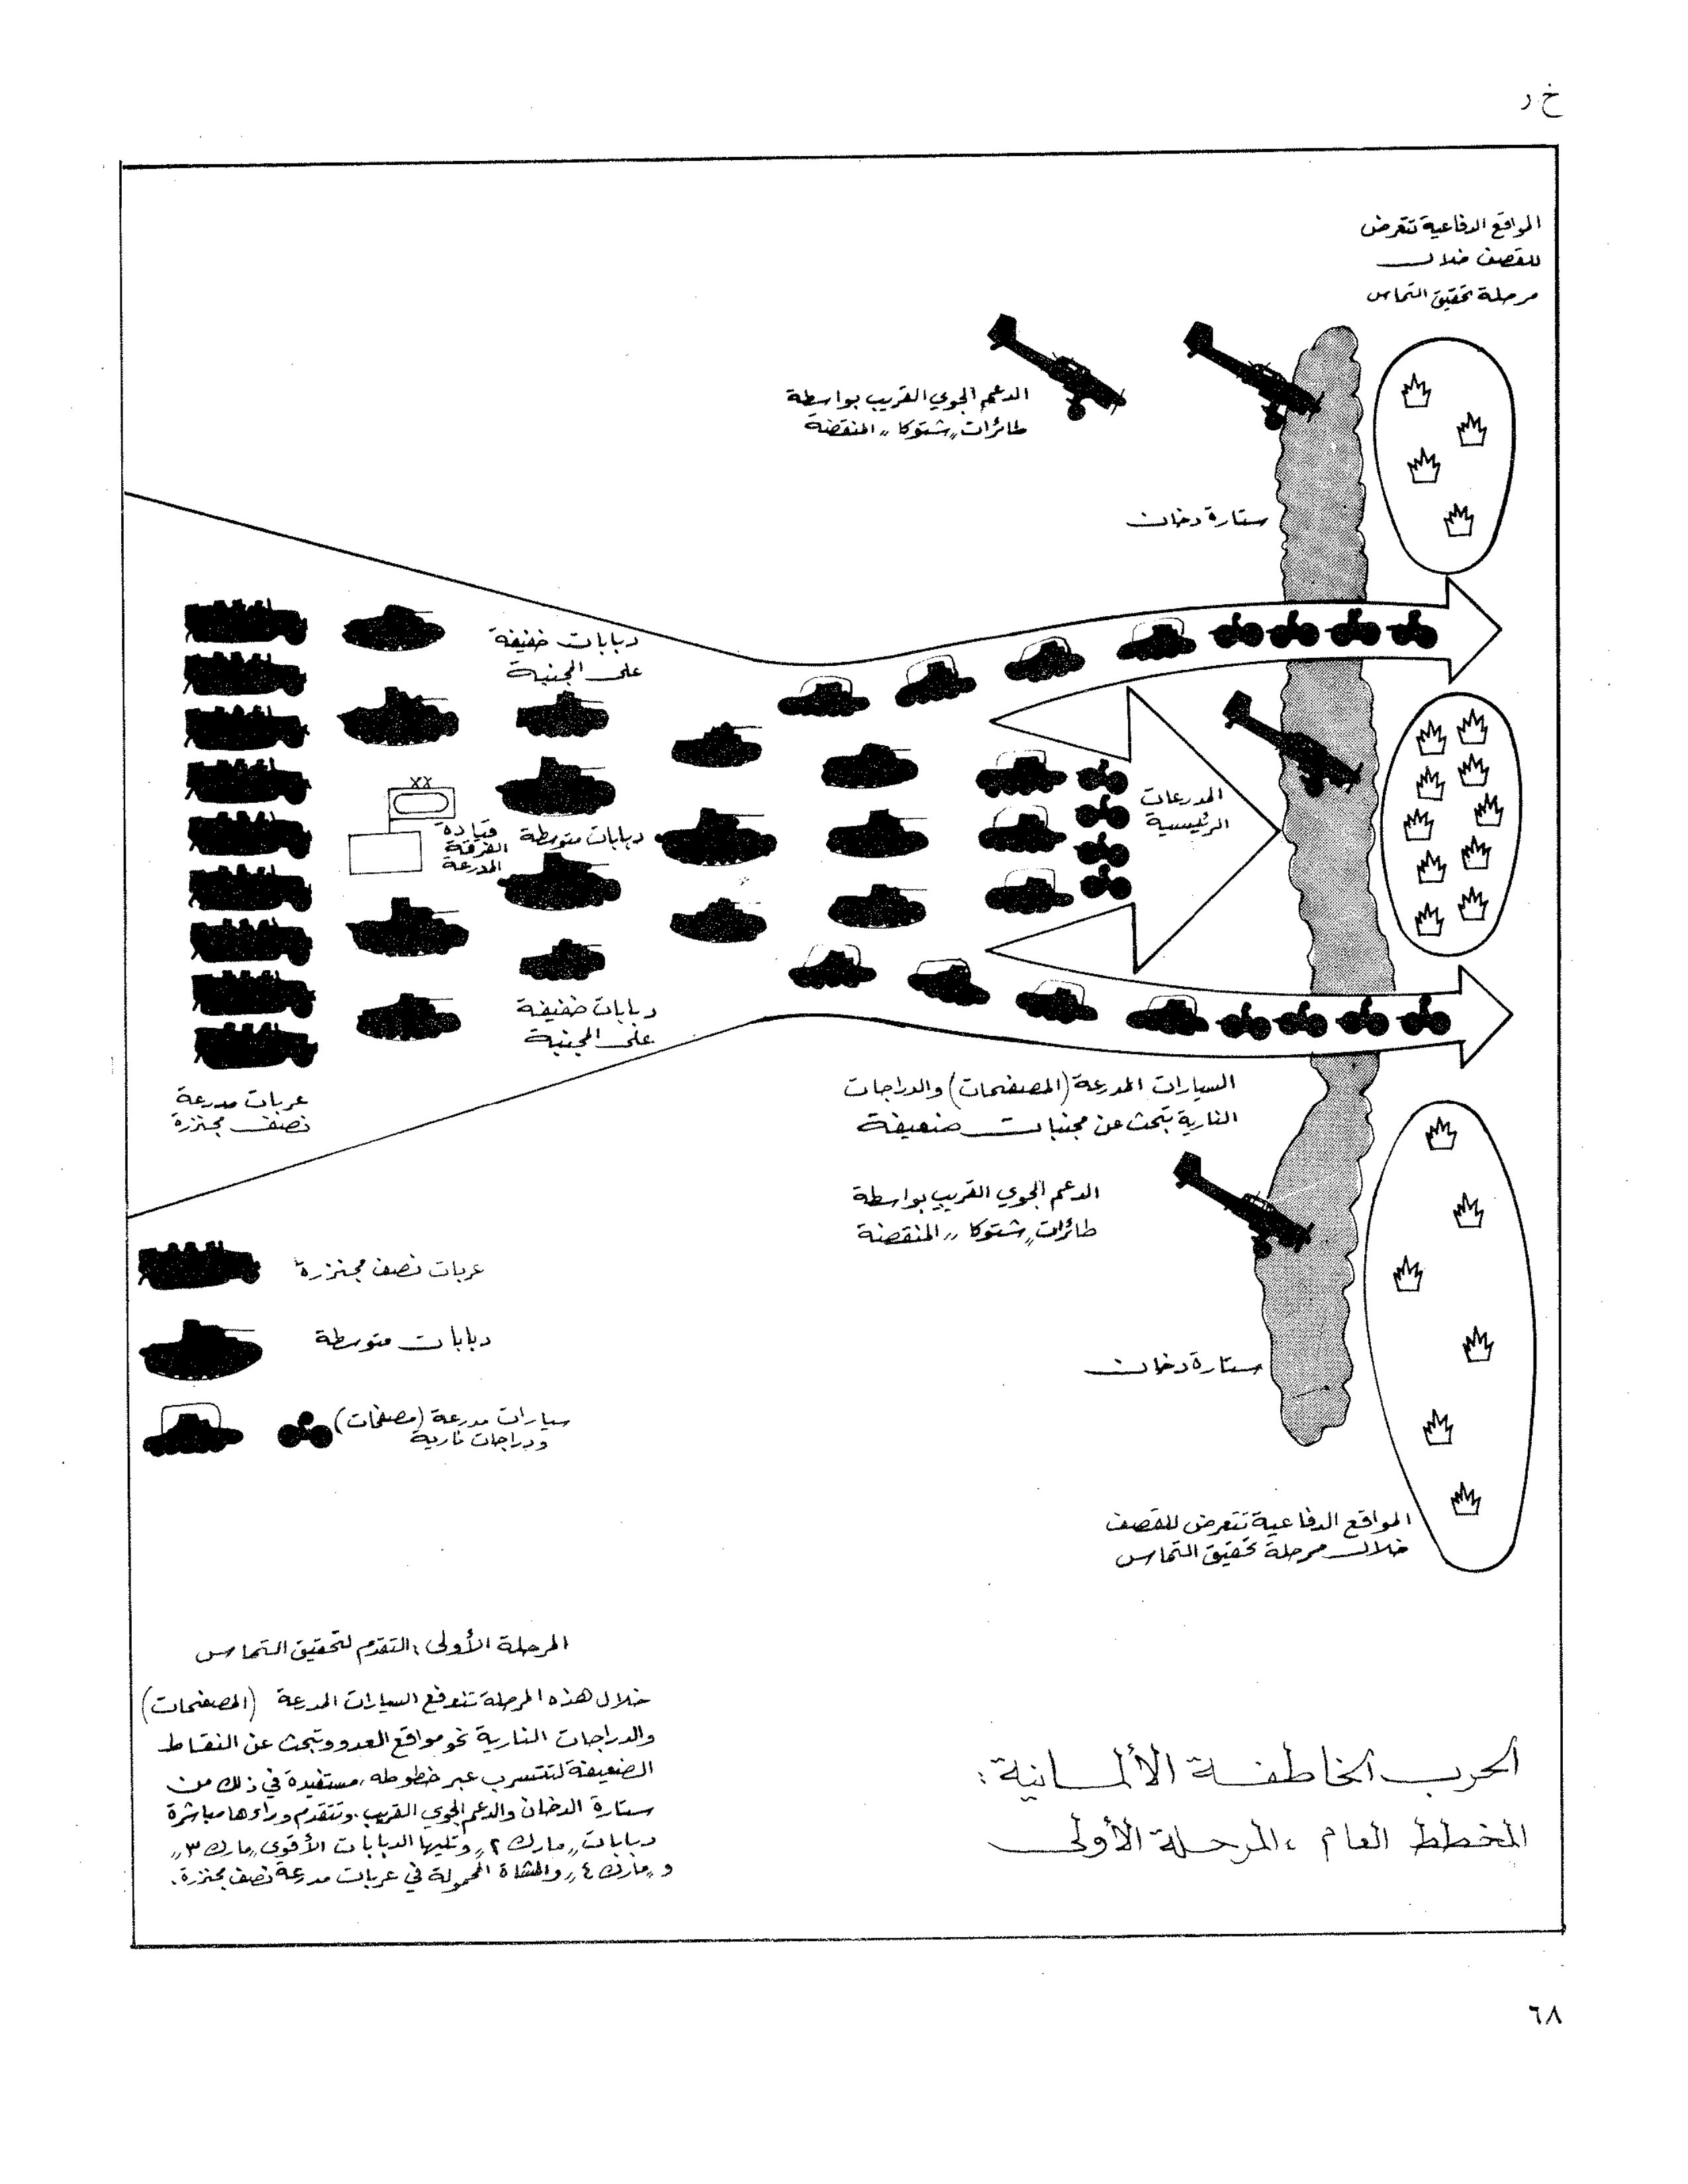 خ ر
المواقع الدفاعية تتعرض
للقصف خلال
مرحلة تحقيق التماس
الدعم الجوي القريب بواسطة
طائرات „شتوكا„ المنقضة
ستارة دخان
دبابات خفيفة
على المجنبة
المدرعات
الرئيسية
XX
قيادة
الفرقة
المدرعة
دبابات متوسطة
دبابات خفيفة
على المجنبة
عربات مدرعة
نصف مجنزرة
السيارات المدرعة (المصفحات) والدراجات
النارية تبحث عن مجنبات ضعيفة
الدعم الجوي القريب بواسطة
طائرات „شتوكا„ المنقضة
ستارة دخان
عربات نصف مجنزرة
دبابات متوسطة
سيارات مدرعة (مصفحات)
ودراجات نارية
المواقع الدفاعية تتعرض للقصف
خلال مرحلة تحقيق التماس
المرحلة الأولى: التقدم لتحقيق التماس
خلال هذه المرحلة تندفع السيارات المدرعة (المصفحات)
والدراجات النارية نحو مواقع العدو وتبحث عن النقاط
الضعيفة لتتسرب عبر خطوطه، مستفيدة في ذلك من
ستارة الدخان والدعم الجوي القريب. وتتقدم وراءها مباشرة
دبابات „مارك ٢„ وتليها الدبابات الأقوى „مارك ٣„
و„مارك ٤„ والمشاة المحمولة في عربات مدرعة نصف مجنزرة.
الحرب الخاطفة الألمانية:
المخطط العام ، المرحلة الأولى
٦٨